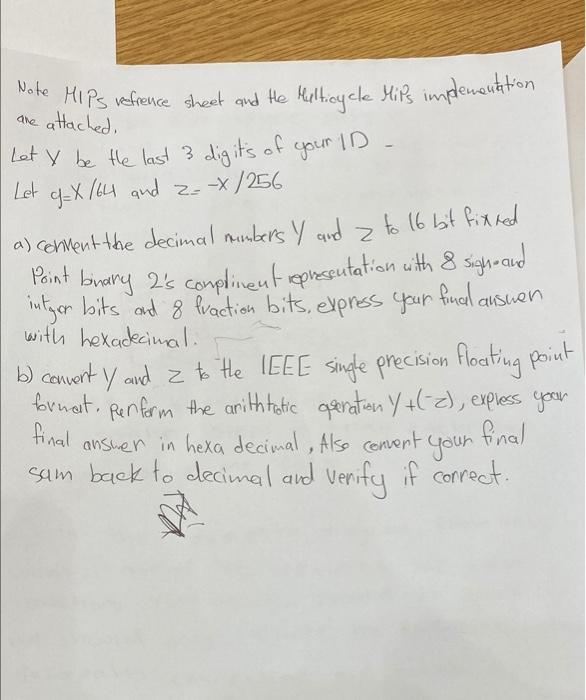 Note MIPs refrence sheet and the Multicycle MiPs implementation
are attached.
Let Y be the last 3 digits of your ID -
Let y=X/64 and z= -X/256
a) convent the decimal numbers Y and z to 16 bit fixxed
Point binary 2's compliment representation with 8 sign and
intger bits and 8 fraction bits, express your final answer
with hexadecimal.
b) convert Y and z to the IEEE single precision floating point
format. Perform the ariththtic operation Y+(-z), express your
final answer in hexa decimal, Also convent your final
sum back to decimal and verify if correct.